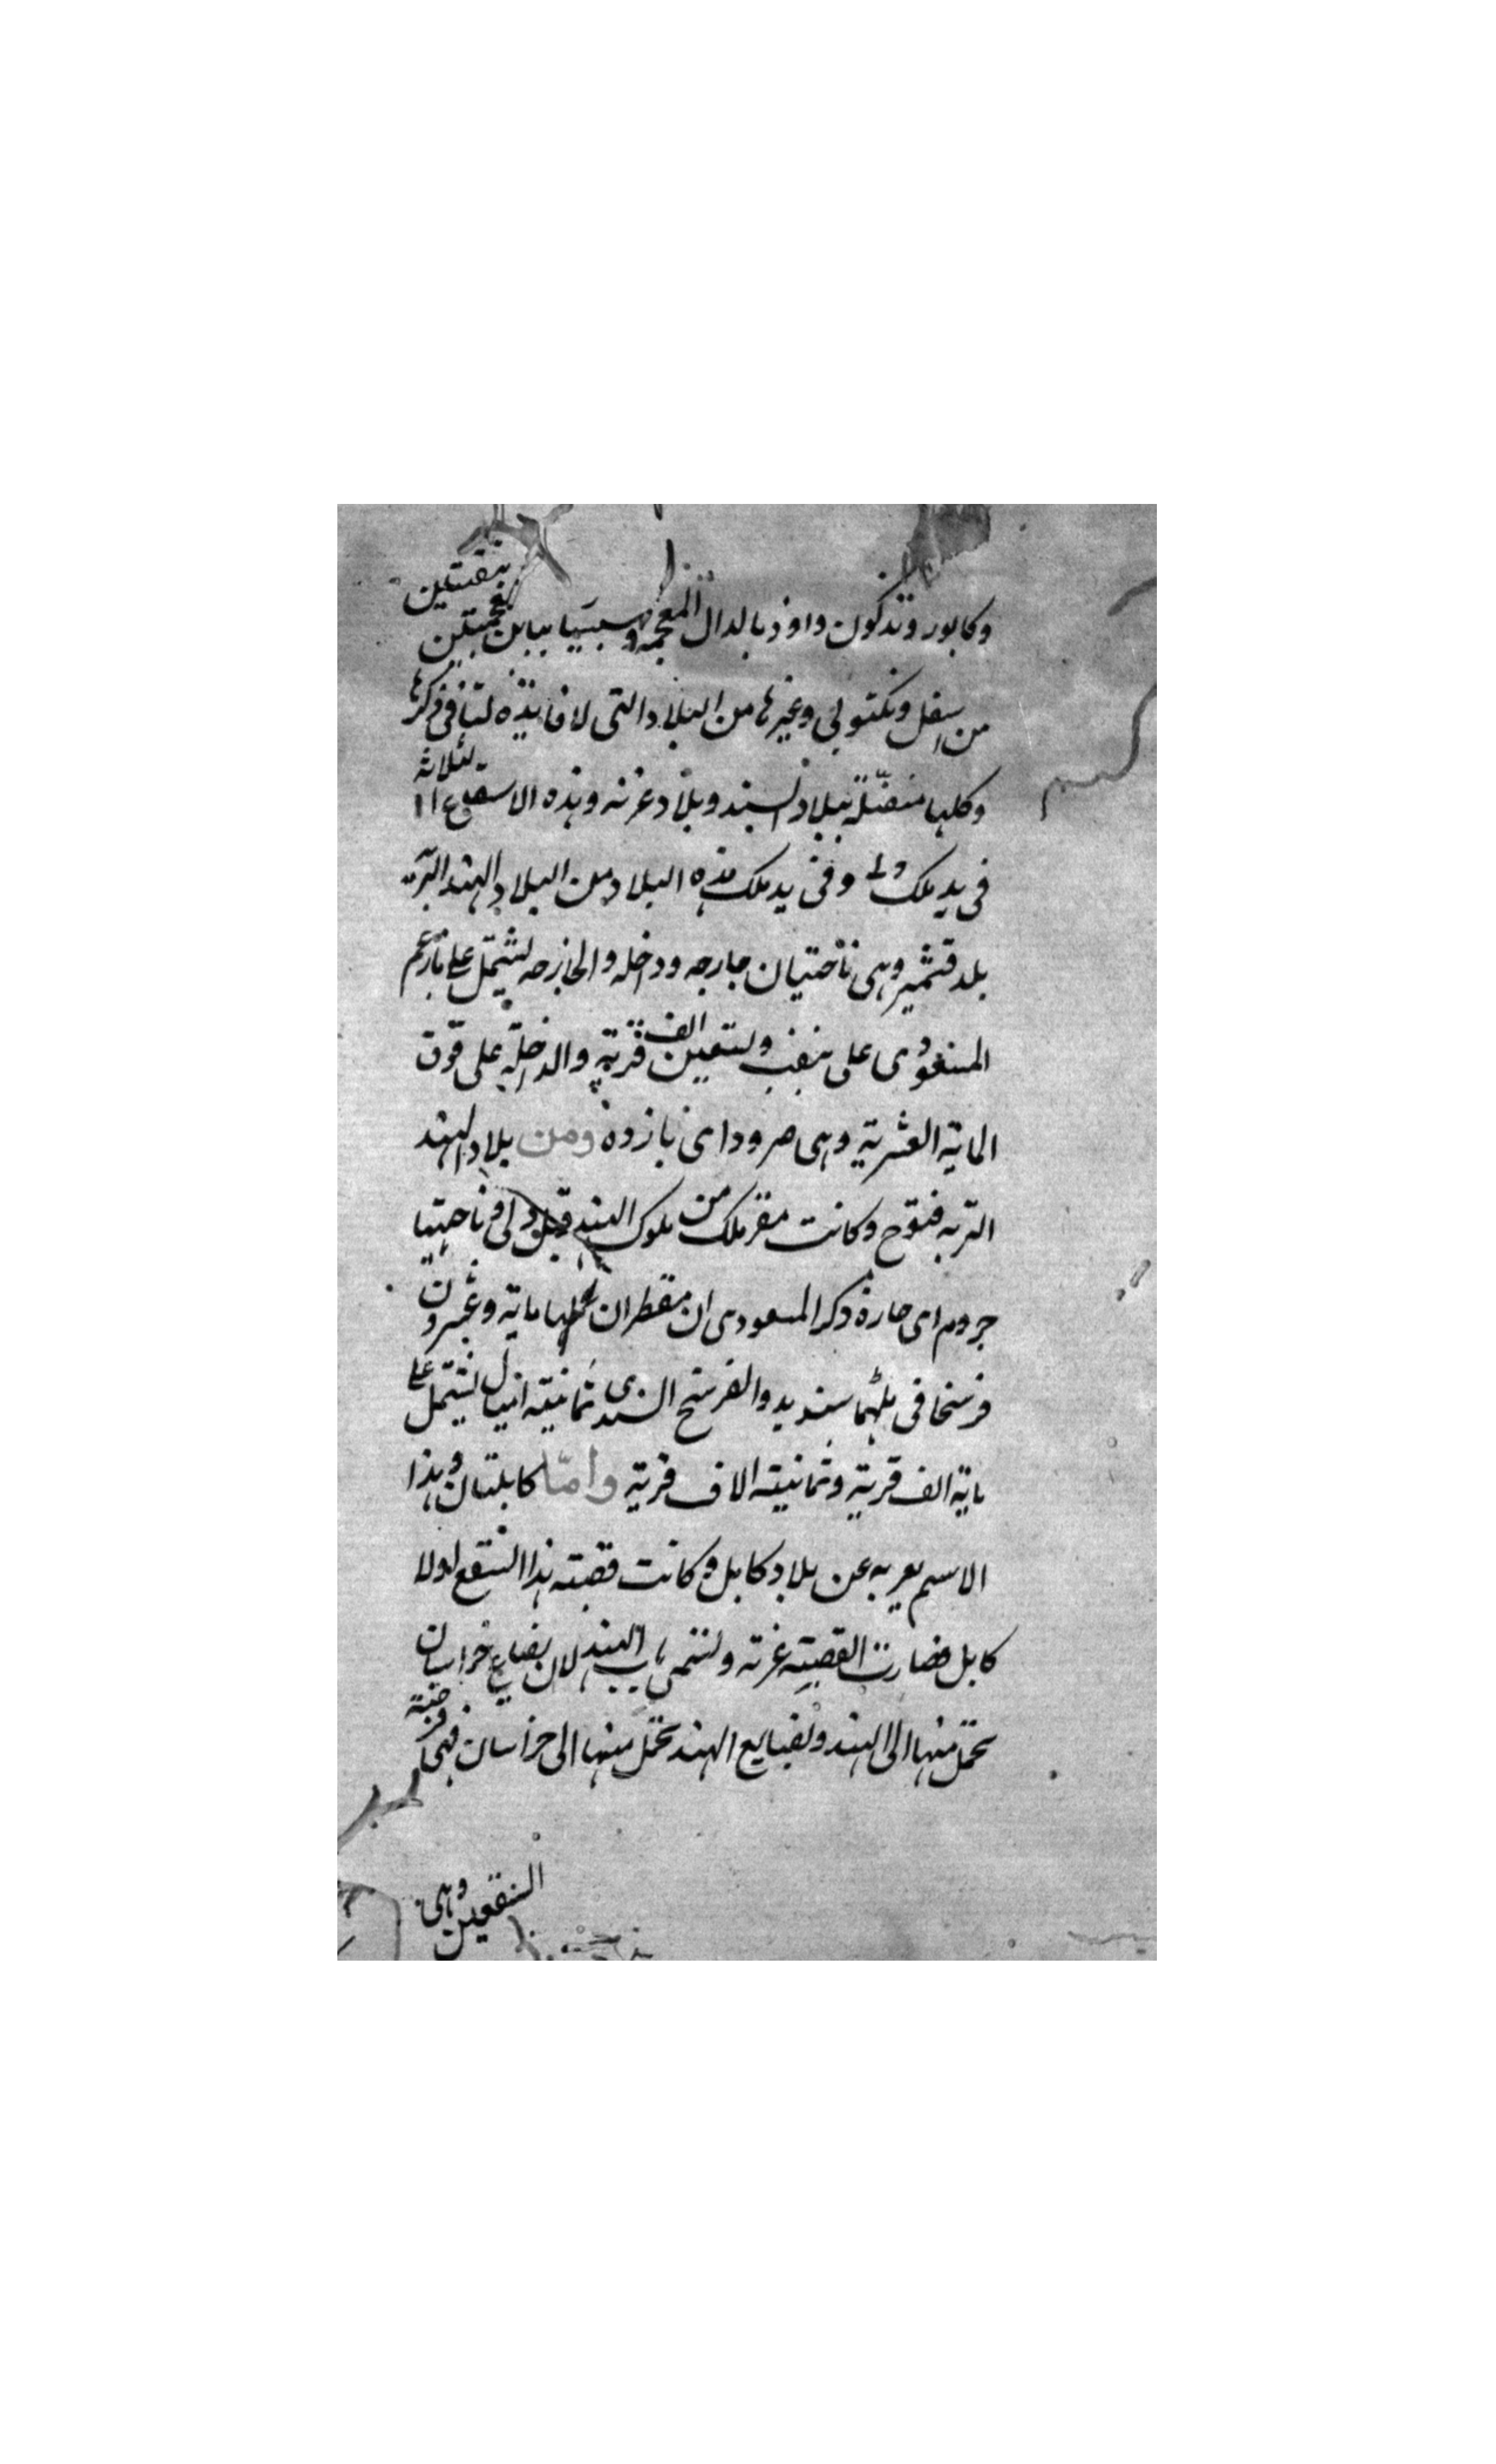 بنقطتين
وكابور وتدكون واوذ بالدال المعجمه وسبنيا ببابن تحتيتين
من اسفل ونكتولى وغيرها من البلاد التى لا فايده لنا فى ذكرها
وكلها متصلة ببلاد السند وبلاد غزنه وهذه الاسقاع الثلاثه
فى يد ملك دلى وفى يد ملك هذه البلاد من البلاد الهند البريه
بلد قشمير وهى ناحيتان خارجه وداخله والخارجه يشتمل على ما زعم
المسعودى على نيف وستعين الف قرية والداخلة على فوق
الماية العشرية وهى صرود اى بارده ومن بلاد الهند
البريه قنوج وكانت مقر ملك من ملوك الهند قبل دلى وناحيتها
جروم اى حاره ذكر المسعودى ان مقطران عملها ماية وعشرون
فرسخا فى مثلهما سنديه والفرسخ السندى ثمانية اميال يشتمل على
ماية الف قرية وثمانية الاف قرية واما كابلتان وهذا
الاسم يعربه عن بلاد كابل وكانت قصبته هذا السقع اولا
كابل فصارت القصبة غزنه وتسمى باب الهند لان بضايع خراسان
تحمل منها الى الهند وبضايع الهند تحمل منها الى خراسان فهى فرضة
السقعين وهى